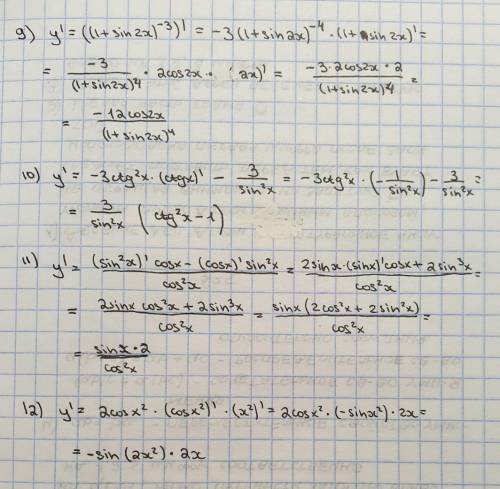 9) y' = ((1+sin2x)⁻³)' = -3(1+sin2x)⁻⁴ · (1+sin2x)' =
= -3/(1+sin2x)⁴ · 2cos2x · (2x)' = -3·2cos2x·2/(1+sin2x)⁴ =
= -12cos2x/(1+sin2x)⁴
10) y' = -3ctg²x · (ctgx)' - 3/sin²x = -3ctg²x · (-1/sin²x) - 3/sin²x =
= 3/sin²x (ctg²x - 1)
11) y' = (sin²x)' cosx - (cosx)' sin²x/cos²x = 2sinx·(sinx)'cosx + 2sin³x/cos²x =
= 2sinx cos²x + 2sin³x/cos²x = sinx(2cos²x + 2sin²x)/cos²x =
= sinx·2/cos²x
12) y' = 2cosx² · (cosx²)' · (x²)' = 2cosx² · (-sinx²) · 2x =
= -sin(2x²) · 2x